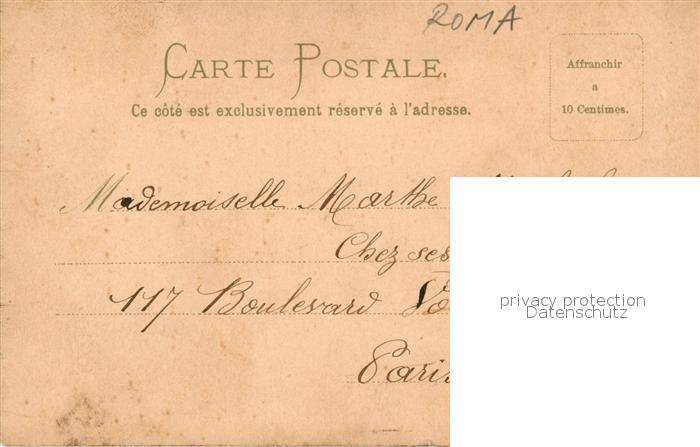 ROMA
CARTE POSTALE.
Ce côté est exclusivement réservé à l'adresse.
Affranchir
a
10 Centimes.
Mademoiselle Marthe
Chez ses
117 Boulevard
Paris
privacy protection
Datenschutz